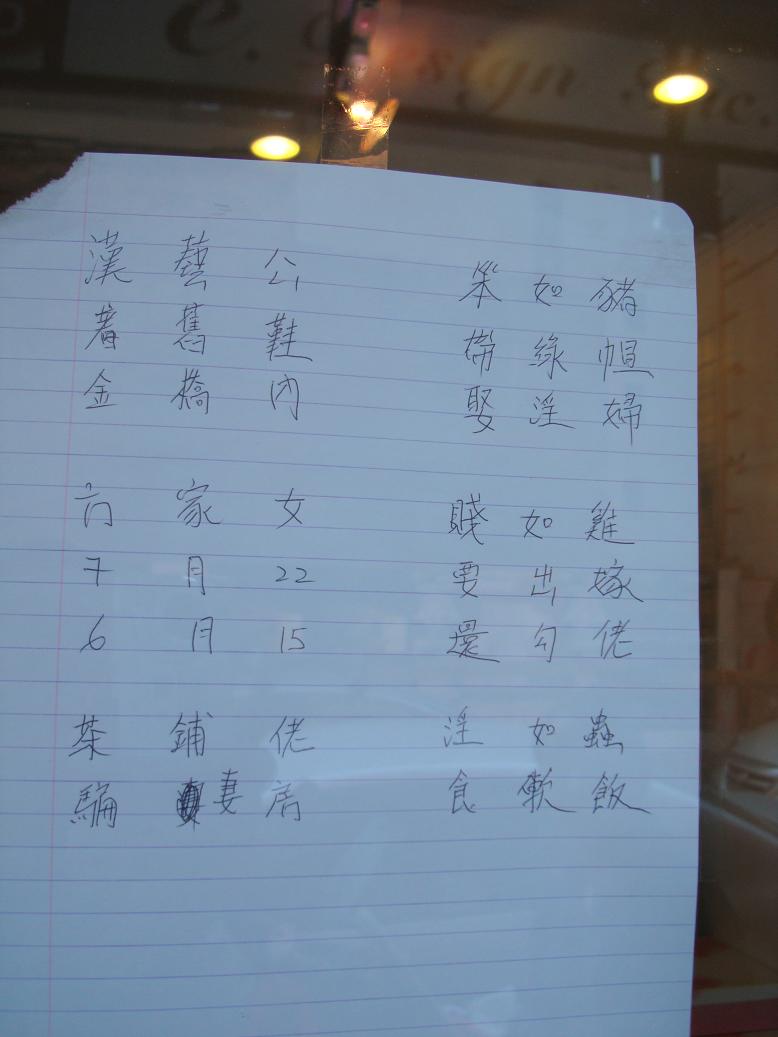 e. Design Inc.
漢藝公 笨如豬
着舊鞋 帶綠帽
金橋內 娶淫婦
方家女 賤如雞
7月22 要出嫁
6月15 還勾佬
茶鋪佬 淫如蟲
騙妻房 食軟飯